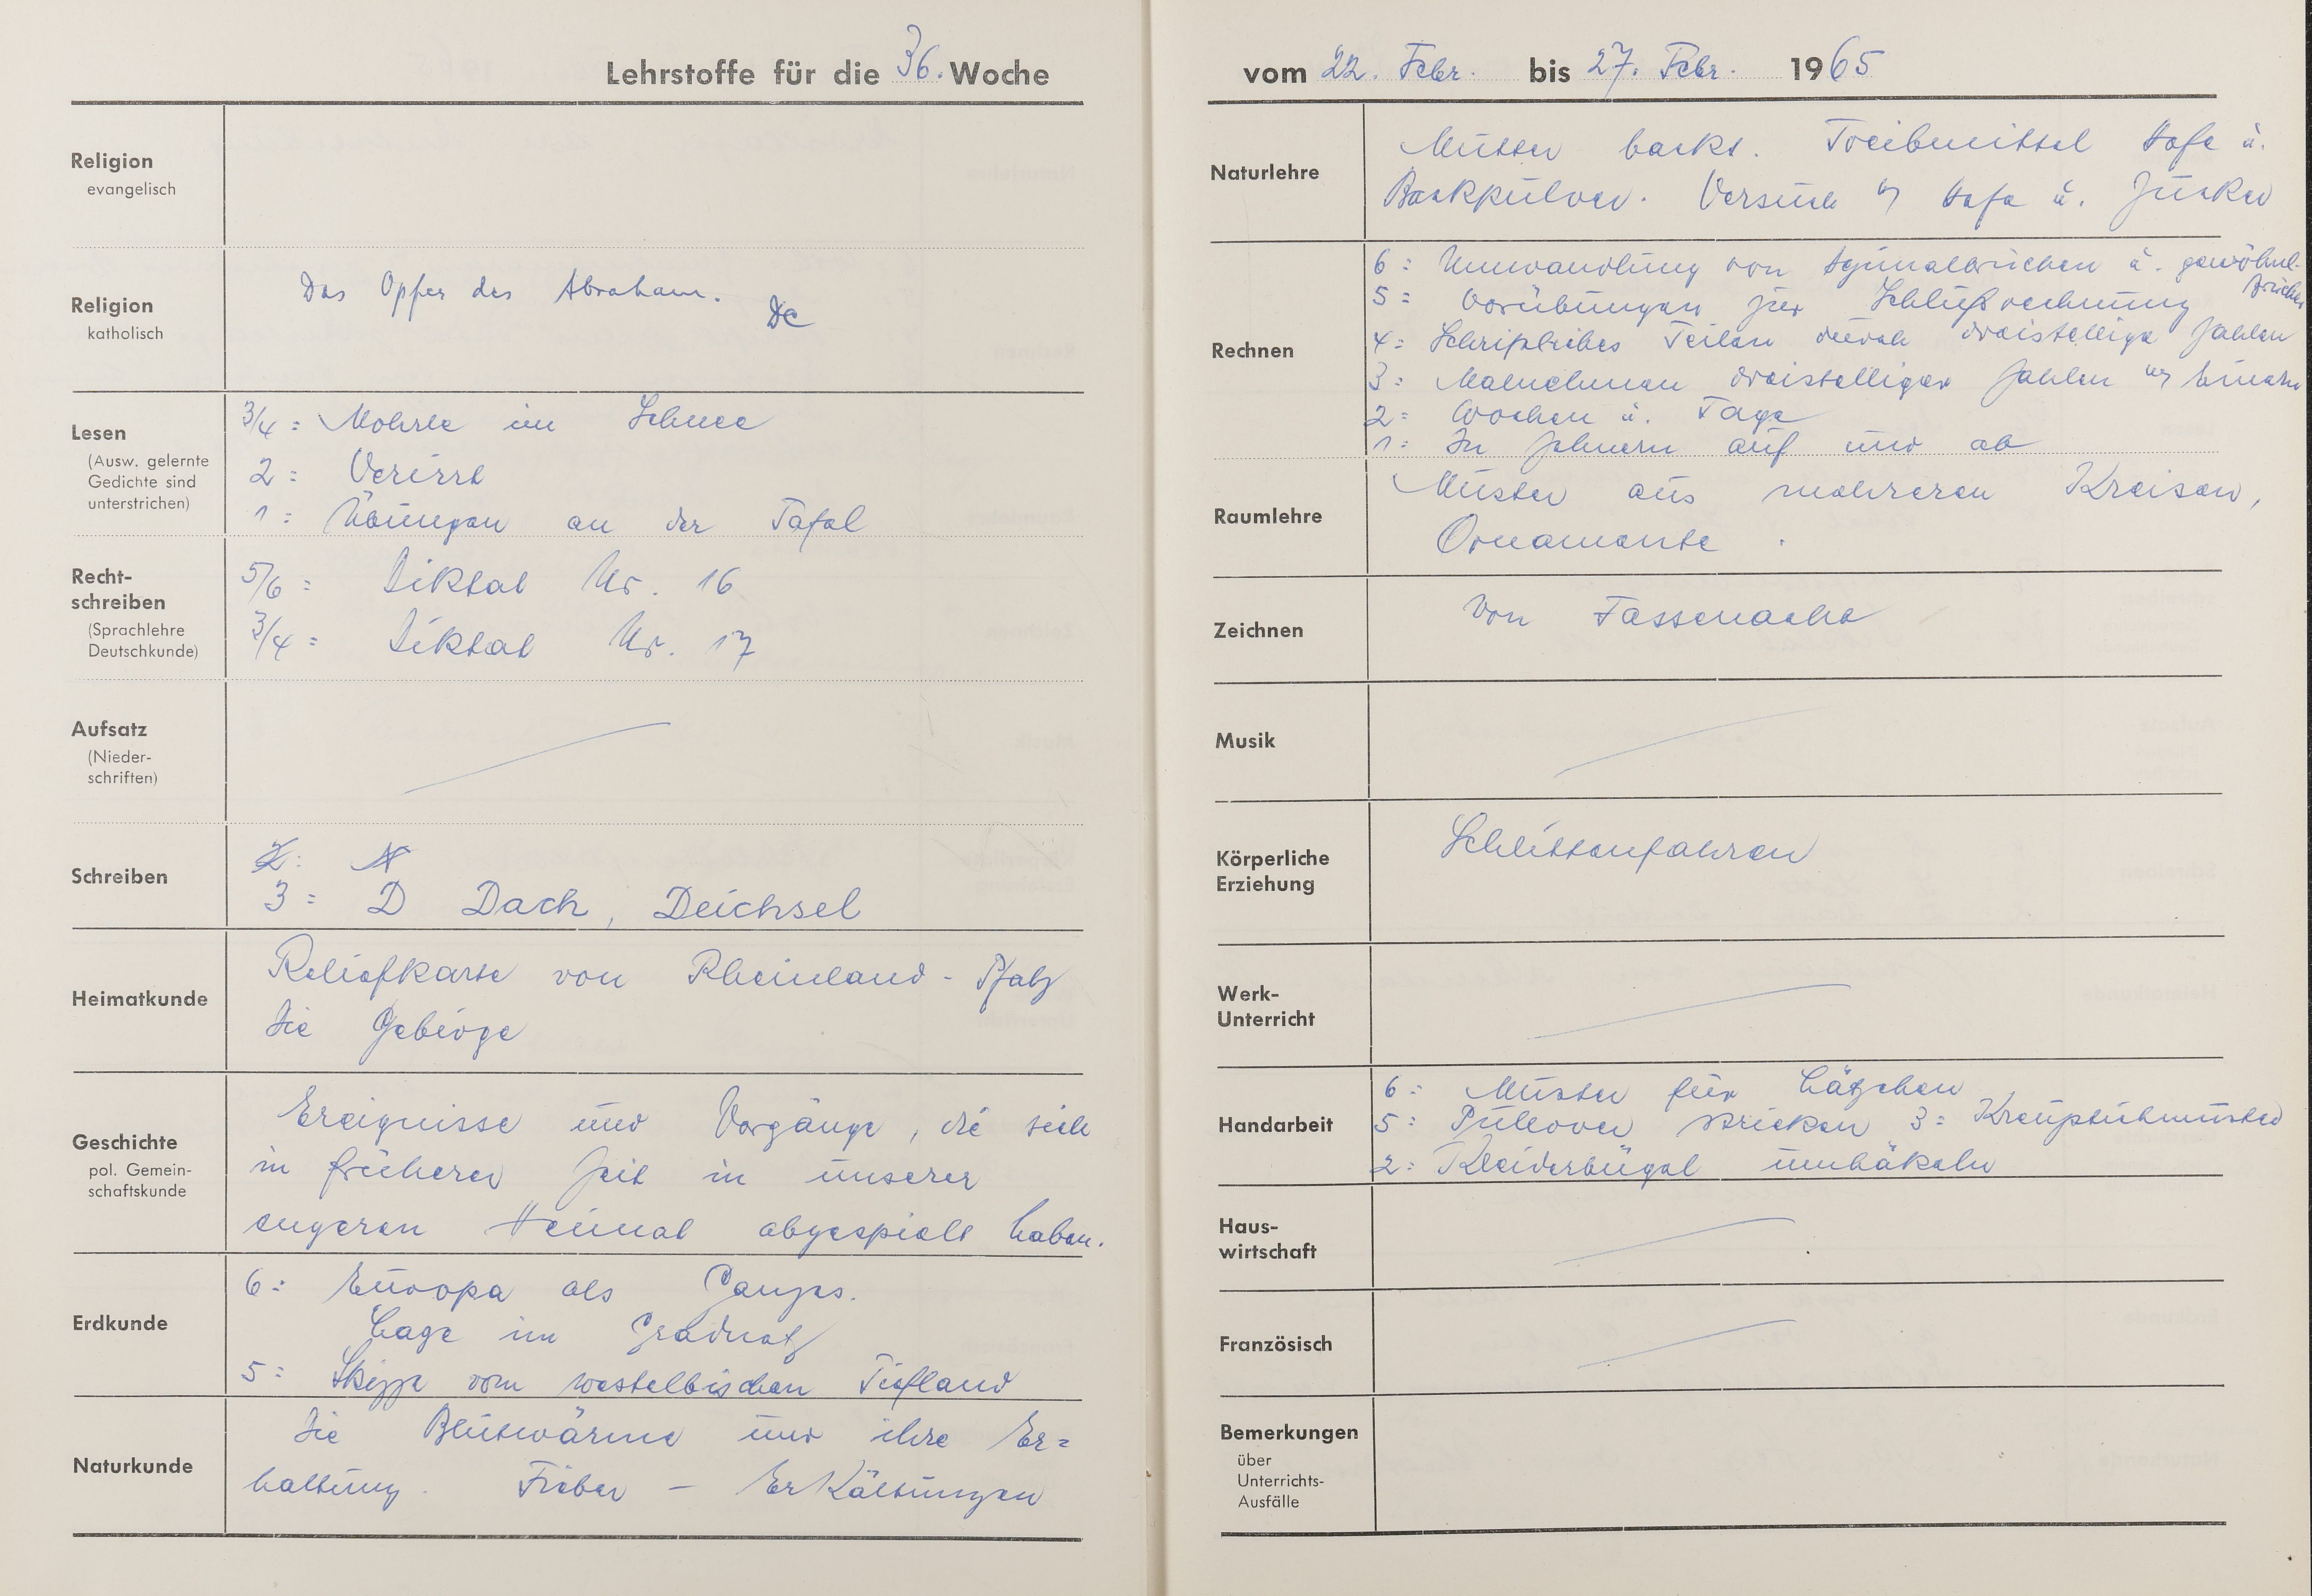 Lehrstoffe für die 36. Woche
Religion
evangelisch
Religion
katholisch
Das Opfer des Abraham.
Lesen
(Ausw. gelernte
Gedichte sind
unterstrichen)
3/4 = Mohrle im Schnee
2 = Verirrt
1 = Übungen an der Tafel
Recht-
schreiben
(Sprachlehre
Deutschkunde)
5/6 = Diktat Nr. 16
3/4 = Diktat Nr. 17
Aufsatz
(Nieder-
schriften)
Schreiben
2: N
3 = D Dach, Deichsel
Heimatkunde
Reliefkarte von Rheinland - Pfalz
Die Gebirge
Geschichte
pol. Gemein-
schaftskunde
Ereignisse und Vorgänge, die sich
in früherer Zeit in unserer
engeren Heimat abgespielt haben.
Erdkunde
6 = Europa als Ganzes.
Lage im Gradnetz
5 = Skizze vom westelbischen Tiefland
Naturkunde
Die Blutwärme und ihre Er=
haltung. Fieber – Erkältungen
vom 22. Febr. bis 27. Febr. 1965
Naturlehre
Mutter backt. Treibmittel Hefe u.
Backpulver. Versuch m Hefe u. Zucker
Rechnen
6 = Umwandlung von Dezimalbrüchen u. gewöhnl.
Brüchen
5 = Vorübungen zur Schlußrechnung
4 = Schriftliches Teilen durch dreistellige Zahlen
3 = Malnehmen dreistelliger Zahlen m Einern
2 = Wochen u. Tage
1 = In Zehnern auf und ab
Raumlehre
Muster aus mehreren Kreisen,
Ornamente .
Zeichnen
Von Fassenacht
Musik
Körperliche
Erziehung
Schlittenfahren
Werk-
Unterricht
Handarbeit
6 = Muster für Lätzchen
5 = Pullover stricken 3 = Kreuzstichmuster
2 = Kleiderbügel umhäkeln
Haus-
wirtschaft
Französisch
Bemerkungen
über
Unterrichts-
Ausfälle